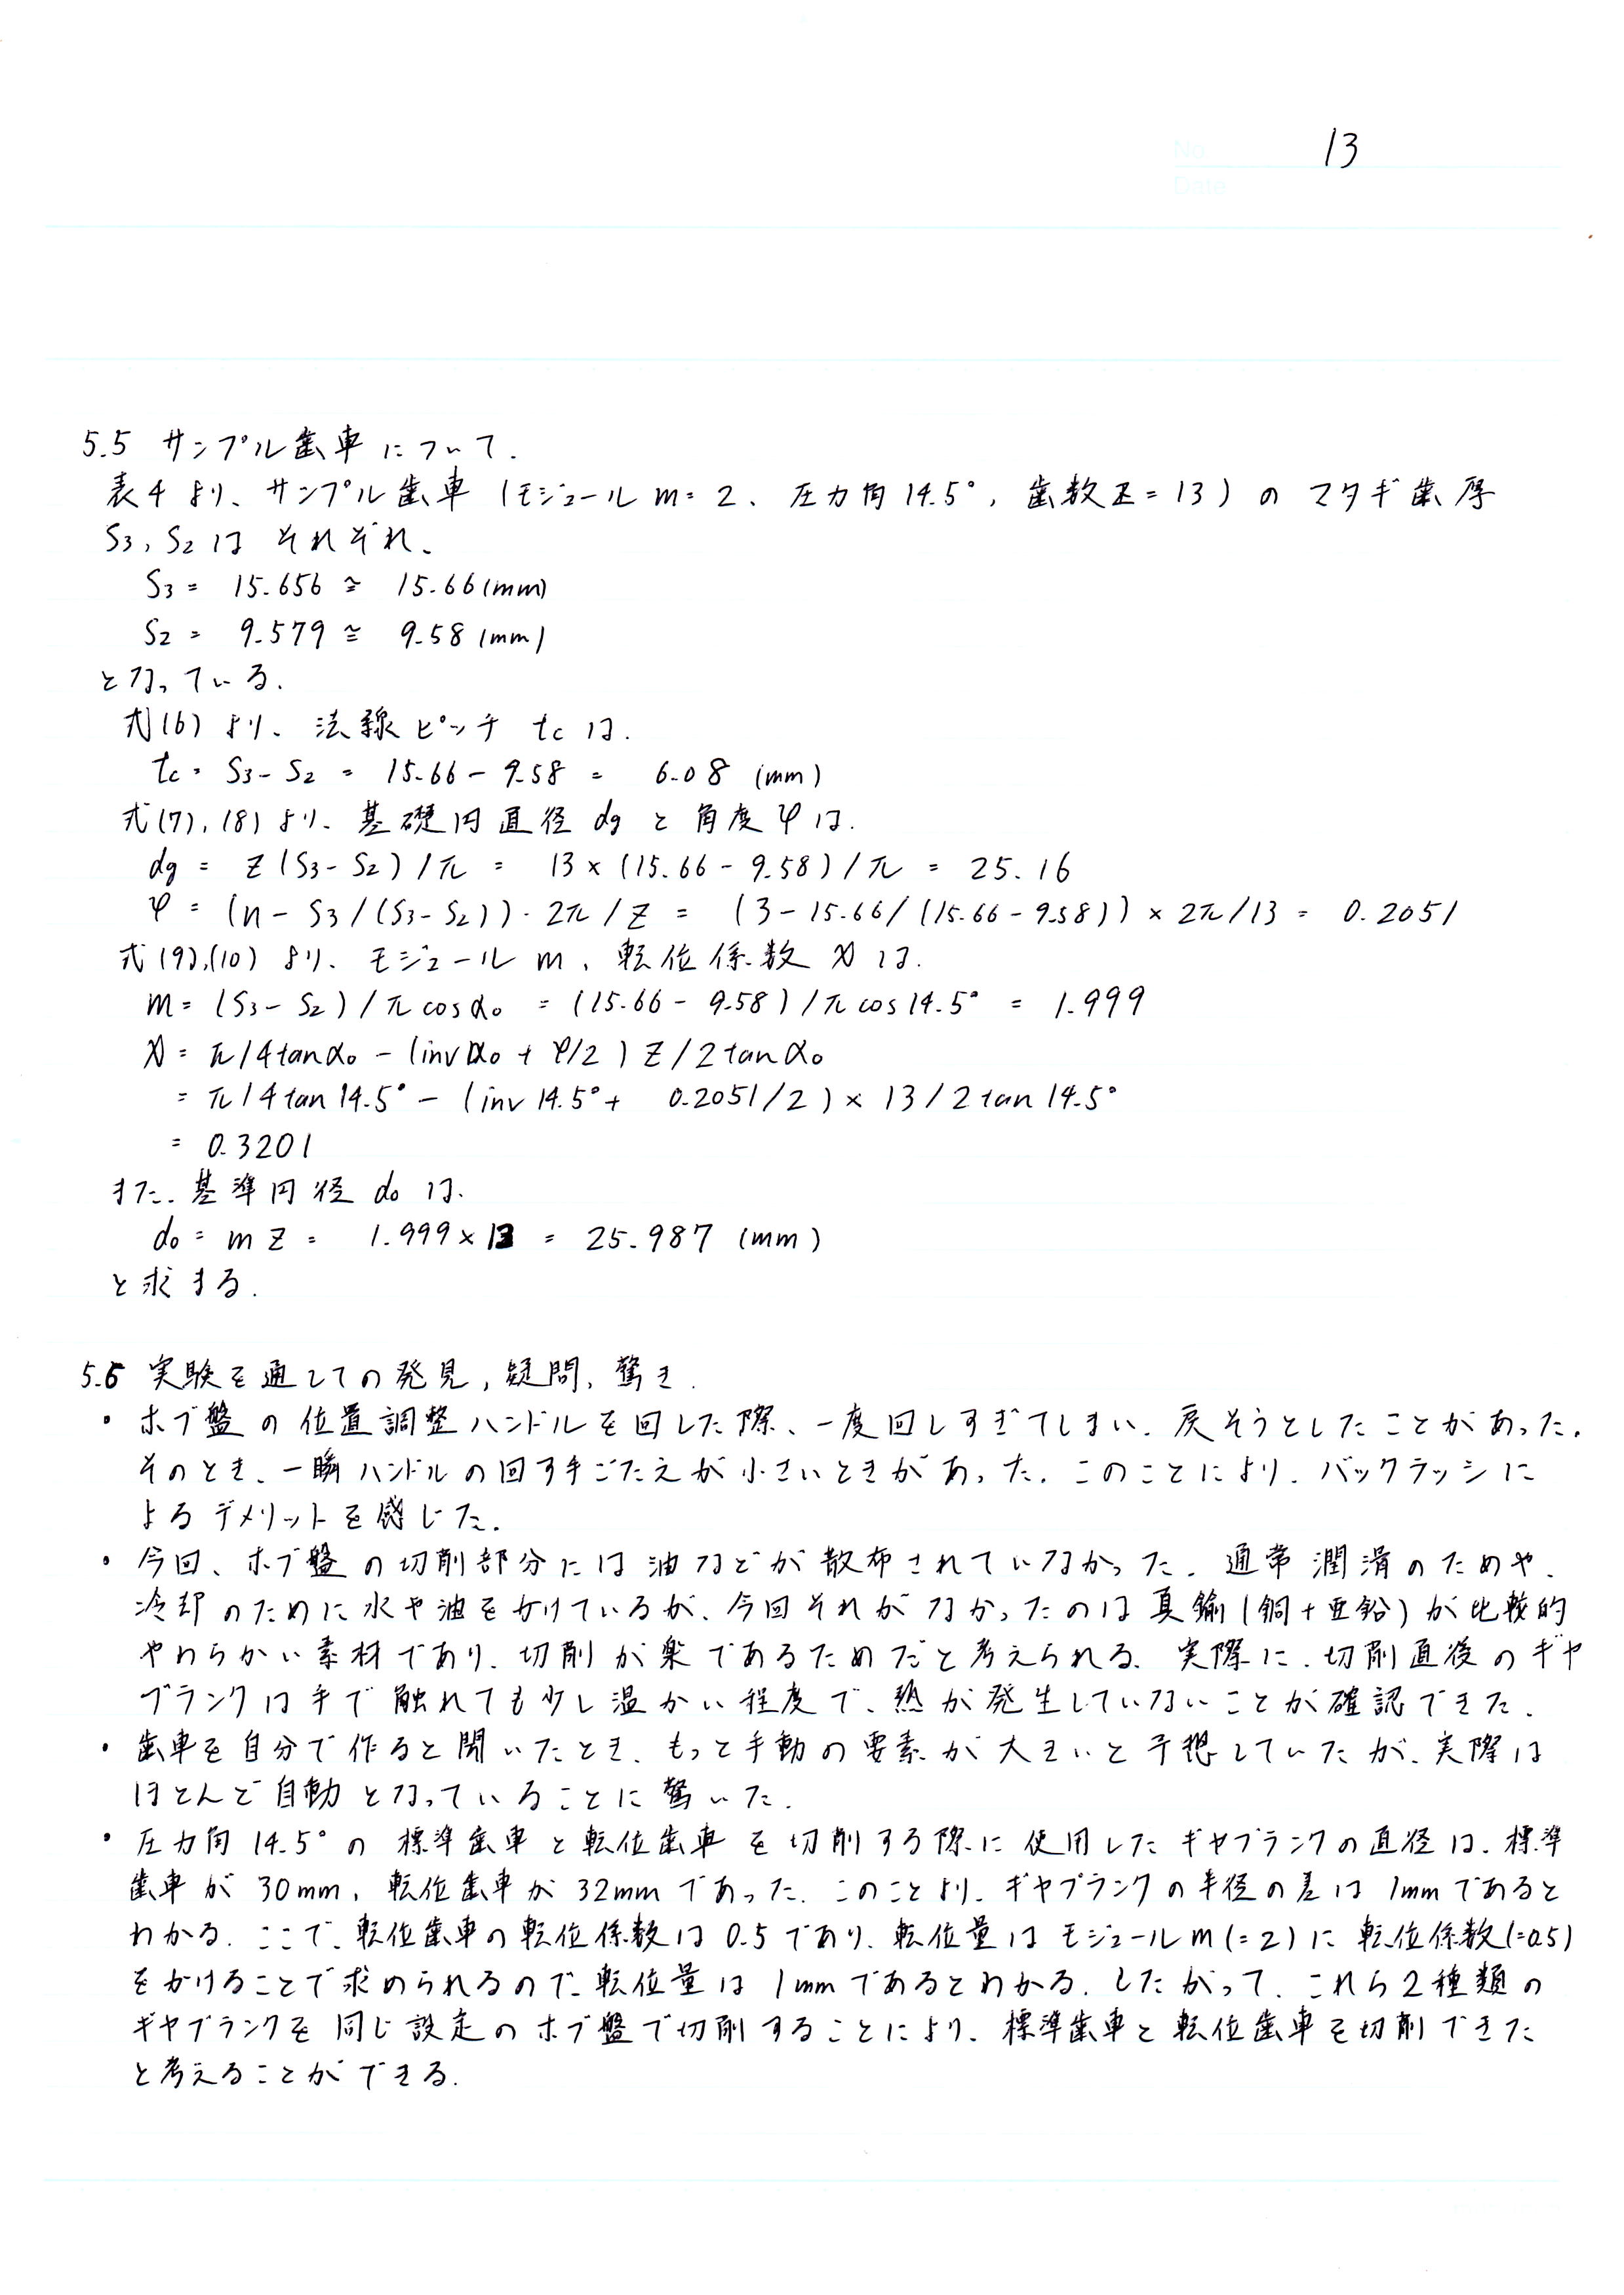 No. 13
Date
5.5 サンプル歯車について.
表4より、サンプル歯車(モジュールm=2、圧力角14.5°,歯数Z=13)のマタギ歯厚
S3,S2はそれぞれ、
S3= 15.656 ≅ 15.66(mm)
S2= 9.579 ≅ 9.58(mm)
となっている.
式(6)より、法線ピッチ tcは.
tc= S3-S2 = 15.66-9.58 = 6.08 (mm)
式(7),(8)より、基礎円直径dgと角度φは.
dg = Z(S3-S2)/π = 13×(15.66-9.58)/π = 25.16
φ = (n-S3/(S3-S2))・2π/Z = (3-15.66/(15.66-9.58))×2π/13 = 0.2051
式(9),(10)より、モジュールm、転位係数xは.
m=(S3-S2)/πcosα0 =(15.66-9.58)/πcos14.5° = 1.999
x=π/4tanα0-(invα0+φ/2)Z/2tanα0
=π/4tan14.5°-(inv14.5°+ 0.2051/2)×13/2tan14.5°
= 0.3201
また、基準円径d0は.
d0=mZ= 1.999×13 = 25.987 (mm)
と求まる.
5.6 実験を通しての発見,疑問,驚き.
・ホブ盤の位置調整ハンドルを回した際、一度回しすぎてしまい、戻そうとしたことがあった.
そのとき、一瞬ハンドルの回す手ごたえが小さいときがあった.このことにより、バックラッシに
よるデメリットを感じた.
・今回、ホブ盤の切削部分には油などが散布されていなかった.通常潤滑のためや、
冷却のために水や油をかけているが、今回それがなかったのは真鍮(銅+亜鉛)が比較的
やわらかい素材であり、切削が楽であるためだと考えられる.実際に、切削直後のギヤ
ブランクは手で触れても少し温かい程度で、熱が発生していないことが確認できた.
・歯車を自分で作ると聞いたとき、もっと手動の要素が大きいと予想していたが、実際は
ほとんど自動となっていることに驚いた.
・圧力角14.5°の標準歯車と転位歯車を切削する際に使用したギヤブランクの直径は、標準
歯車が30mm、転位歯車が32mmであった.このことより、ギヤブランクの半径の差は1mmであると
わかる.ここで、転位歯車の転位係数は0.5であり、転位量はモジュールm(=2)に転位係数(=0.5)
をかけることで求められるので、転位量は1mmであるとわかる.したがって、これら2種類の
ギヤブランクを同じ設定のホブ盤で切削することにより、標準歯車と転位歯車を切削できた
と考えることができる.